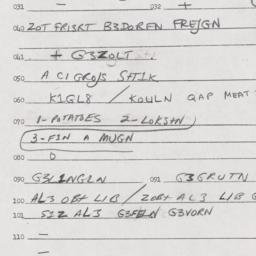 031 — 032 +
040 ZOT FRI3RT B3DOREN FREJGN
041 + G3ZOLT
050 A CIGROJS SHTIK
060 K1GL8 / KOULN QAP MEAT
070 1-POTATOES 2-LOKSHN
3-FIN A MUGN
080 0
090 G3LINGLN 091 G3GRUTN
100 AL3 OBT LIB / ZOBT AL3 LIB G
101 SIZ AL3 G3FELN G3VORN
110 —
—